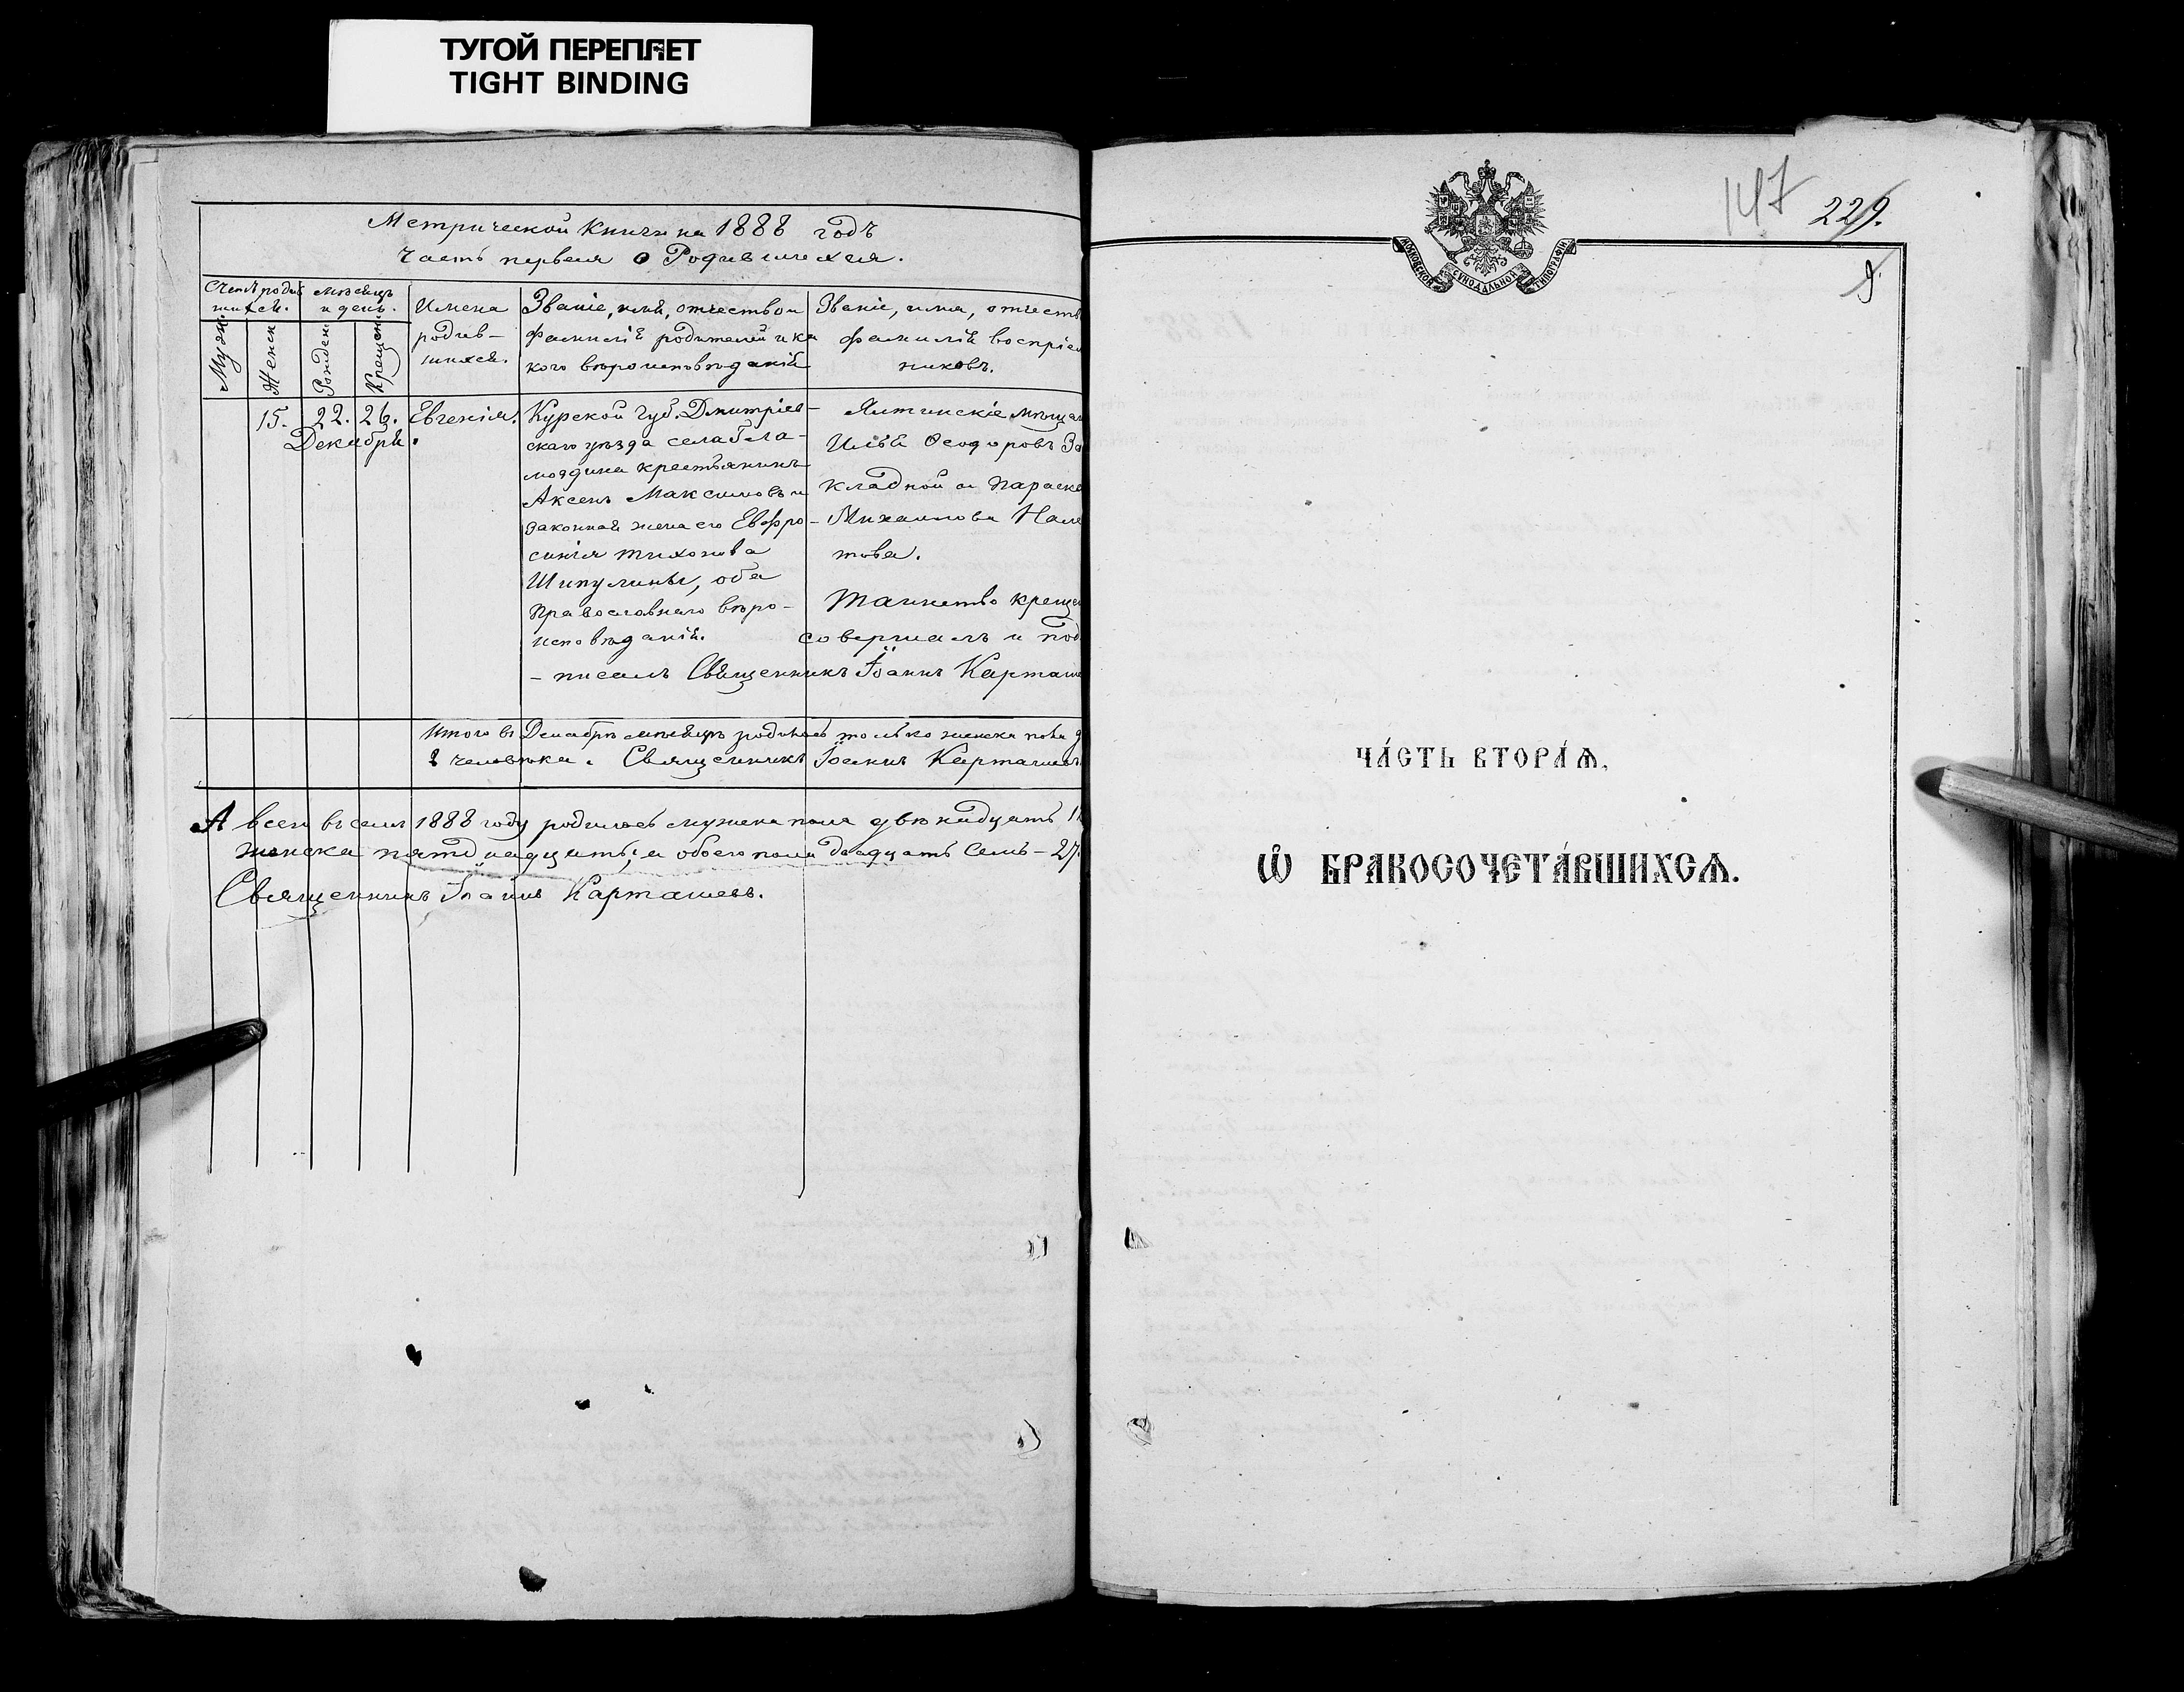 ТУГОЙ ПЕРЕПЛЕТ
TIGHT BINDING
Метрической Книги на 1888 годъ
Часть первая о Родившихся.
Счетъ родив
шихся.
мѣсяцъ
и день.
Муж.
Женск
Рожден
Крещен.
Имена
родив-
шихся.
Званіе, имя, отчество и
фамилія родителей и ка
кого вѣроисповѣданія
Званіе, имя, отчеств
фамилія воспріем
никовъ.
15. 22. 26.
Декабря.
Евгенія.
Курской губ. Дмитріев-
скаго уѣзда села
крестьянинъ
Аксенъ Максимовъ и
законная жена его Евфро-
синія Тихонова
Шипулины, оба
Православнаго вѣро-
исповѣданія.
Ялтинскіе мѣщан
Илья Ѳеодоровъ За
кладной и Параске
Михаилова
това.
Таинство крещен
совершалъ и под
- писалъ Священникъ Іоаннъ Карташе
Итого въ Декабрѣ мѣсяцѣ родилось только женска пола
2 человѣка. Священникъ Іоаннъ Карташевъ
А всего въ семъ 1888 году родилось мужска пола двѣнадцать 12
женска пятнадцать, а обоего пола двадцать семь - 27.
Священникъ Іоаннъ Карташевъ.
147 229.
МОСКОВСКОЙ СѴНОДАЛЬНОЙ ТИПОГРАФІИ
ЧА́СТЬ ВТОРА́Ѧ,
Ѽ БРАКОСОЧЕТА́ВШИХСѦ.